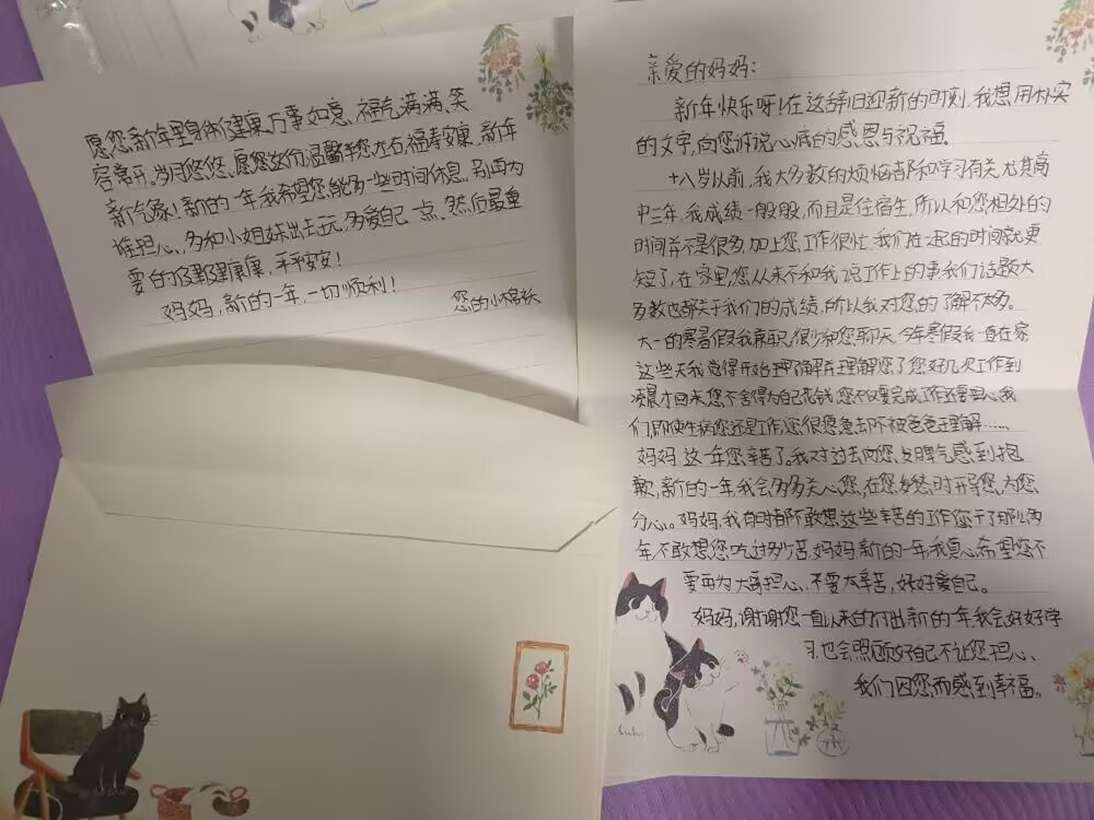 亲爱的妈妈：
新年快乐呀！在这辞旧迎新的时刻，我想用朴实
的文字，向您诉说心底的感恩与祝福。
十八岁以前，我大多数的烦恼者都和学习有关，尤其高
中三年，我成绩一般般，而且是住宿生，所以和您相处的
时间并不是很多，加上您工作很忙，我们在一起的时间就更
短了，在家里，您从来不和我说工作上的事我们话题大
多数也都关于我们的成绩，所以我对您的了解不太多。
大一的寒暑假我兼职，很少和您聊天，今年寒假我一直在家
这些天我觉得开始理了解并理解您了您好几次工作到
凌晨才回来您不舍得为自己花钱，您不仅要完成工作还要担心我
们，即使生病您还是工作，您很愿意去却不被爸爸理解……
妈妈，这一年您辛苦了。我对过去向您发脾气感到抱
歉，新的一年，我会多多关心您，在您发愁时开导您，为您
分心。妈妈，我有时都不敢想这些辛苦的工作您干了那么多
年，不敢想您吃过多少苦，妈妈，新的一年，我真心希望您不
要再为大哥担心，不要太辛苦，好好爱自己。
妈妈，谢谢您一直以来的付出新的一年，我会好好学
习，也会照顾好自己不让您担心、
我们因您而感到幸福。
愿您新年里身体健康，万事如意、福气满满、笑
容常开。岁月悠悠、愿您这份温馨伴您左右，福寿安康，新年
新气象！新的一年，我希望您，能多一些时间休息，别再为
谁担心、多和小姐妹出去玩，多爱自己一点、然后最重
要的健健康康，平平安安！
妈妈，新的一年，一切顺利！
您的小棉袄